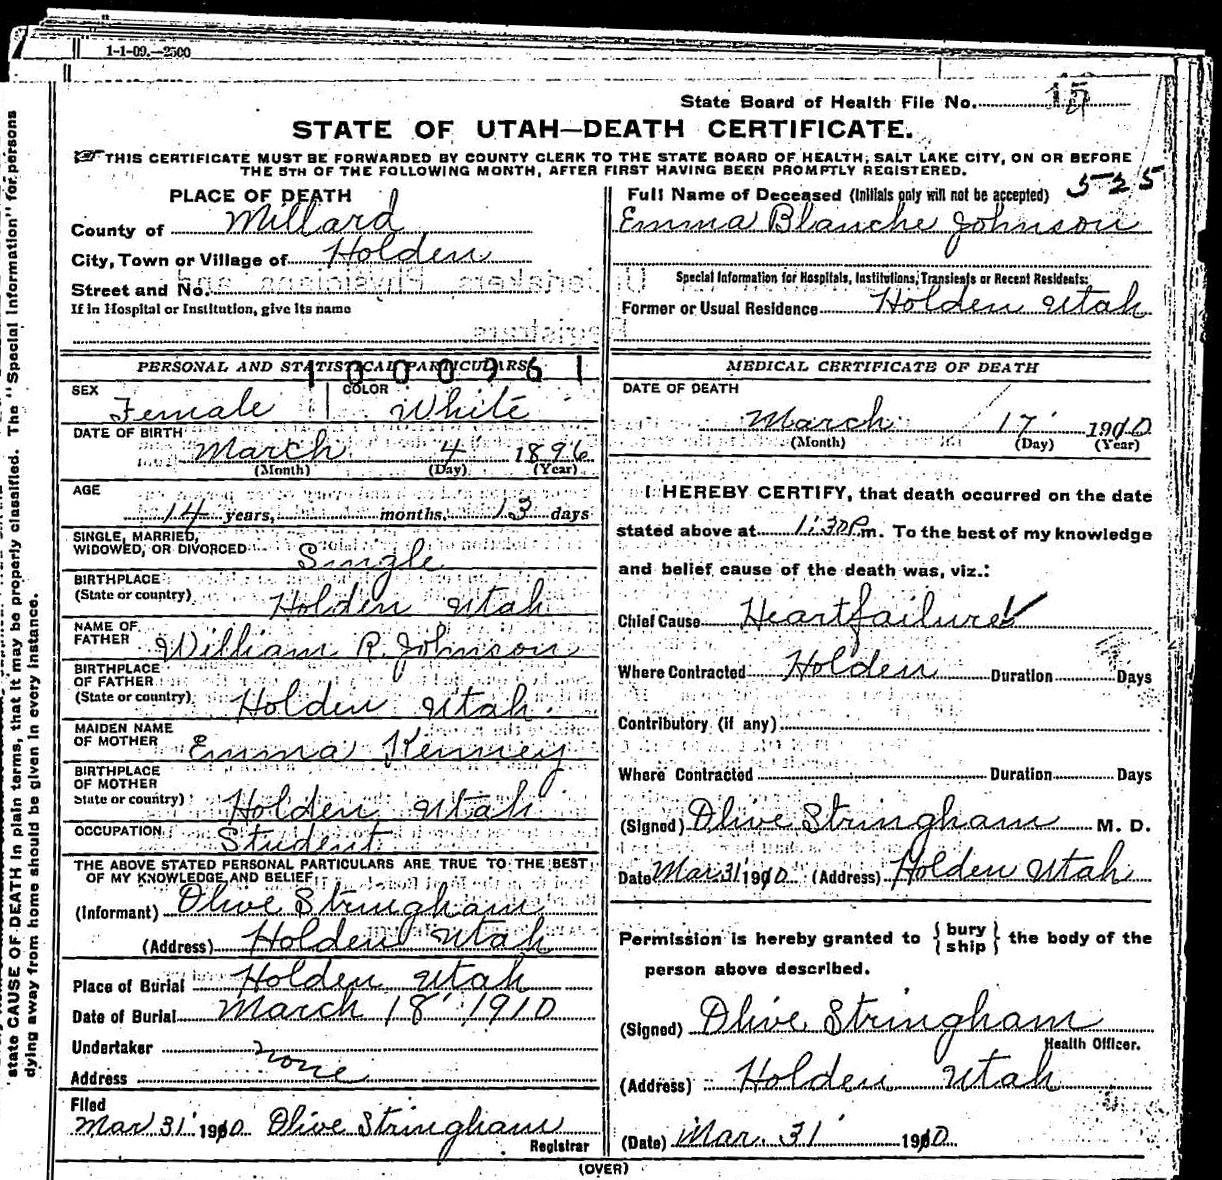 1-1-09.—2500
State Board of Health File No. 15
STATE OF UTAH—DEATH CERTIFICATE.
THIS CERTIFICATE MUST BE FORWARDED BY COUNTY CLERK TO THE STATE BOARD OF HEALTH, SALT LAKE CITY, ON OR BEFORE
THE 5TH OF THE FOLLOWING MONTH, AFTER FIRST HAVING BEEN PROMPTLY REGISTERED.
525
PLACE OF DEATH
County of Millard
City, Town or Village of Holden
Street and No.
If in Hospital or Institution, give its name
Full Name of Deceased (Initials only will not be accepted)
Emma Blanche Johnson
Special Information for Hospitals, Institutions, Transients or Recent Residents:
Former or Usual Residence Holden Utah
PERSONAL AND STATISTICAL PARTICULARS
1000961
SEX Female COLOR White
DATE OF BIRTH March 4 1896
(Month) (Day) (Year)
AGE
14 years, months, 13 days
SINGLE, MARRIED,
WIDOWED, OR DIVORCED Single
BIRTHPLACE
(State or country) Holden Utah
NAME OF
FATHER William R. Johnson
BIRTHPLACE
OF FATHER
(State or country) Holden Utah.
MAIDEN NAME
OF MOTHER Emma Kenney
BIRTHPLACE
OF MOTHER
State or country) Holden Utah
OCCUPATION Student
THE ABOVE STATED PERSONAL PARTICULARS ARE TRUE TO THE BEST
OF MY KNOWLEDGE AND BELIEF
(Informant) Olive Stringham
(Address) Holden Utah
Place of Burial Holden Utah
Date of Burial March 18 1910
Undertaker none
Address
Filed
Mar 31 1910 Olive Stringham
Registrar
MEDICAL CERTIFICATE OF DEATH
DATE OF DEATH
March 17 1910
(Month) (Day) (Year)
I HEREBY CERTIFY, that death occurred on the date
stated above at 1:30 P.m. To the best of my knowledge
and belief cause of the death was, viz.:
Chief Cause Heart failure
Where Contracted Holden Duration Days
Contributory (if any)
Where Contracted Duration Days
(Signed) Olive Stringham M. D.
Date Mar 31 1910 (Address) Holden Utah
Permission is hereby granted to {bury
ship} the body of the
person above described.
(Signed) Olive Stringham
Health Officer.
(Address) Holden Utah
(Date) Mar. 31 1910
(OVER)
state CAUSE OF DEATH in plain terms, that it may be properly classified. The "Special Information" for persons
dying away from home should be given in every instance.